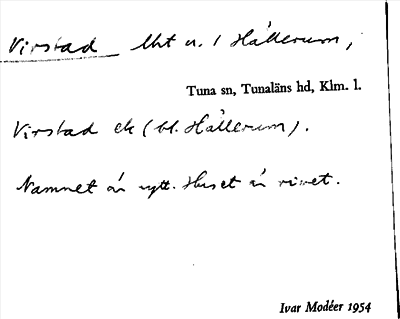 Virstad lht u. 1 Hållerum,
Tuna sn, Tunaläns hd, Klm. l.
Virstad ek (bl. Hållerum).
Namnet är nytt. Huset är rivet.
Ivar Modéer 1954